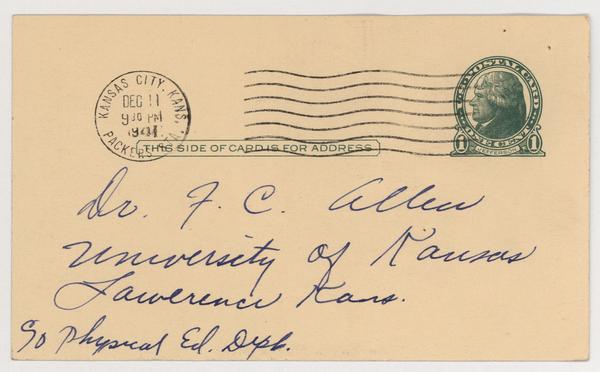 KANSAS CITY, KANS.
DEC 11
9 30 PM
1941
PACKERS STA.
U.S. POSTAL CARD
1 ONE CENT 1
JEFFERSON
THIS SIDE OF CARD IS FOR ADDRESS
Dr. F. C. Allen
University of Kansas
Lawerence Kans.
c/o Physical Ed. Dept.